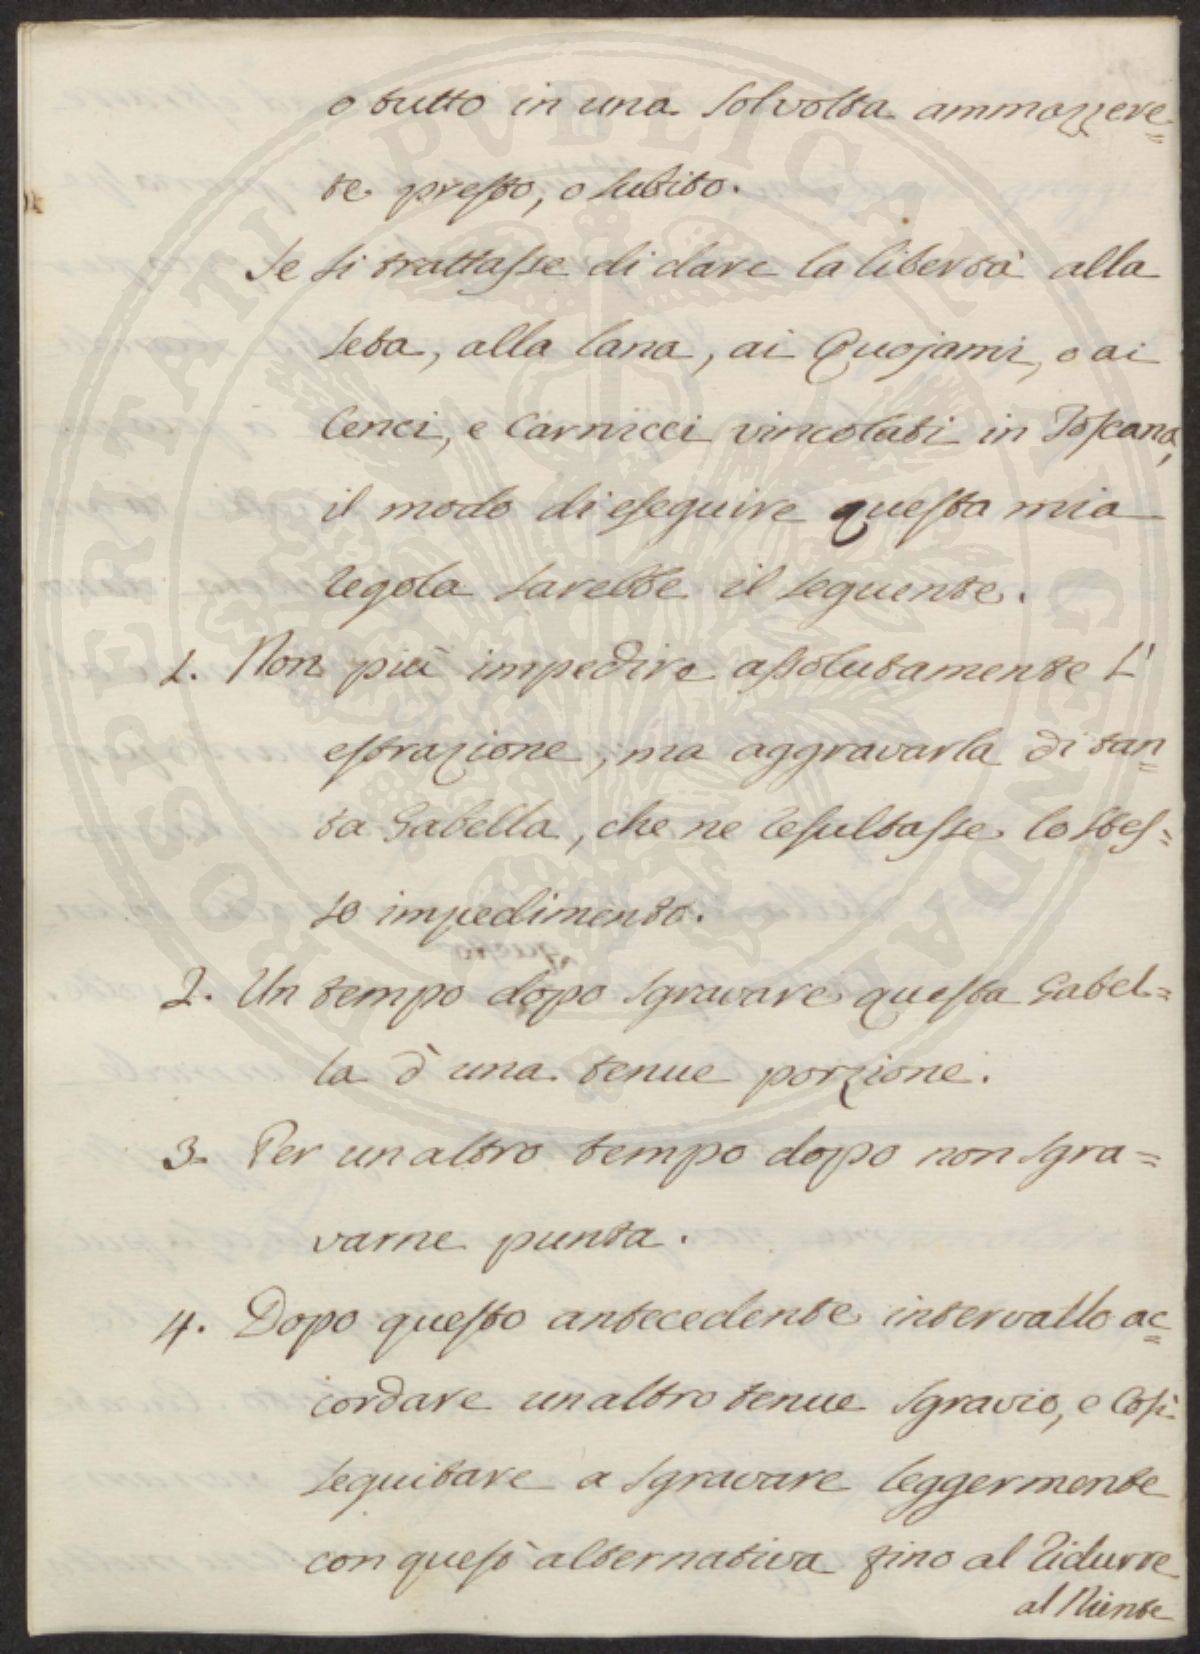 o tutto in una sol volta ammazzere=
te presto, o subito.
Se si trattasse di dare la libertà alla
seta, alla lana, ai Quojami, o ai
Cenci, e Carnicci vincolati in Toscana,
il modo di eseguire questa mia
regola sarebbe il seguente.
1. Non più impedire assolutamente l'
estrazione, ma aggravarla di tan=
ta Gabella, che ne resultasse lo stes=
so impedimento.
2. Un tempo dopo sgravare questa Gabel=
la d'una tenue porzione.
3. Per un altro tempo dopo non sgra=
varne punta.
4. Dopo questo antecedente intervallo ac=
cordare un altro tenue sgravio, e così
seguitare a sgravare leggermente
con quest'alternativa fino al ridurre
al Niente
PROSPERITATI PVBLICAE AVGENDAE